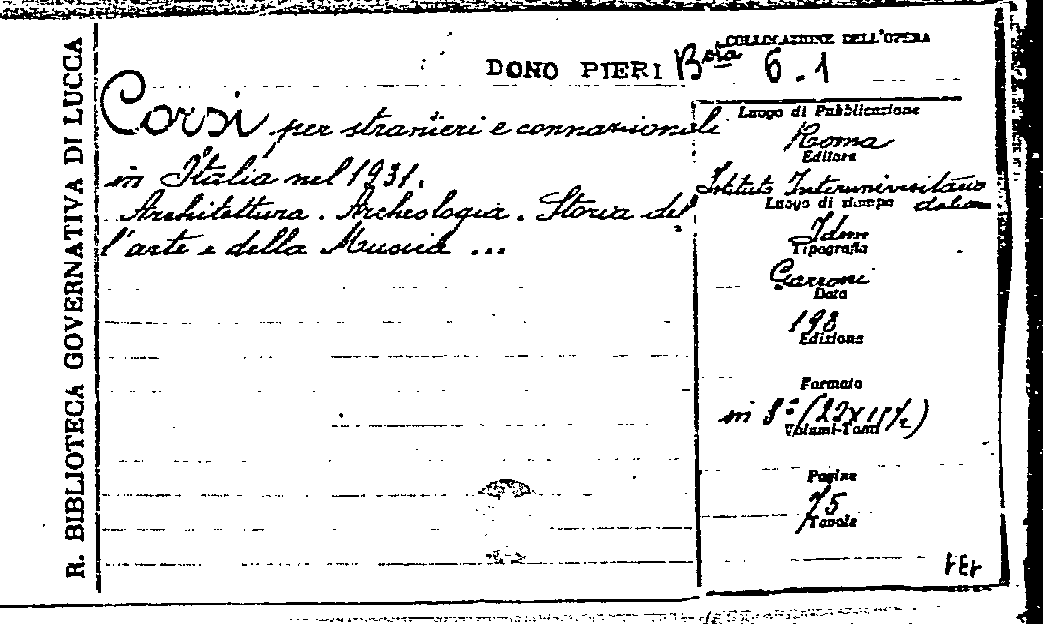 R. BIBLIOTECA GOVERNATIVA DI LUCCA
COLLOCAZIONE DELL'OPERA
DONO PIERI Bsta 6.1
Corsi per stranieri e connazionali
in Italia nel 1931.
Architettura. Archeologia. Storia del
l'arte e della Musica ...
Luogo di Pubblicazione
Roma
Editore
Istituto Interuniversitario
italiano
Luogo di stampa
Idem
Tipografia
Garroni
Data
198
Edizione
Formato
in 8°
Volumi-Tomi
Pagine
75
Tavole